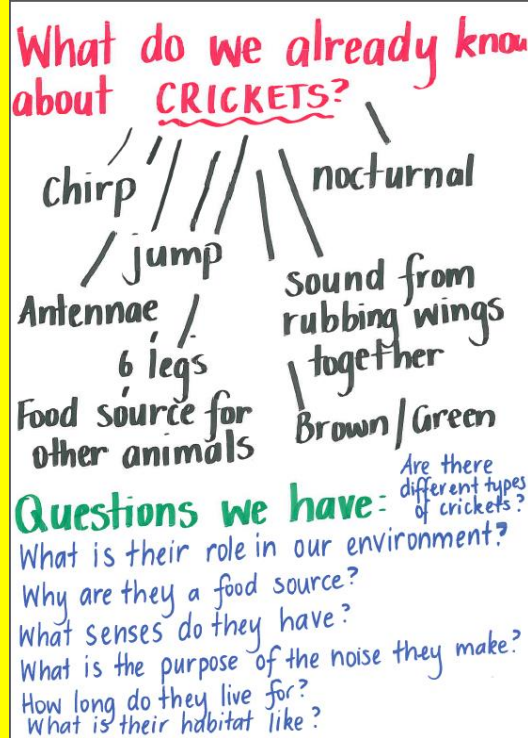 What do we already know
about CRICKETS?
chirp
nocturnal
jump
Antennae
6 legs
Food source for
other animals
sound from
rubbing wings
together
Brown/Green
Questions we have:
Are there
different types
of crickets?
What is their role in our environment?
Why are they a food source?
What senses do they have?
What is the purpose of the noise they make?
How long do they live for?
What is their habitat like?